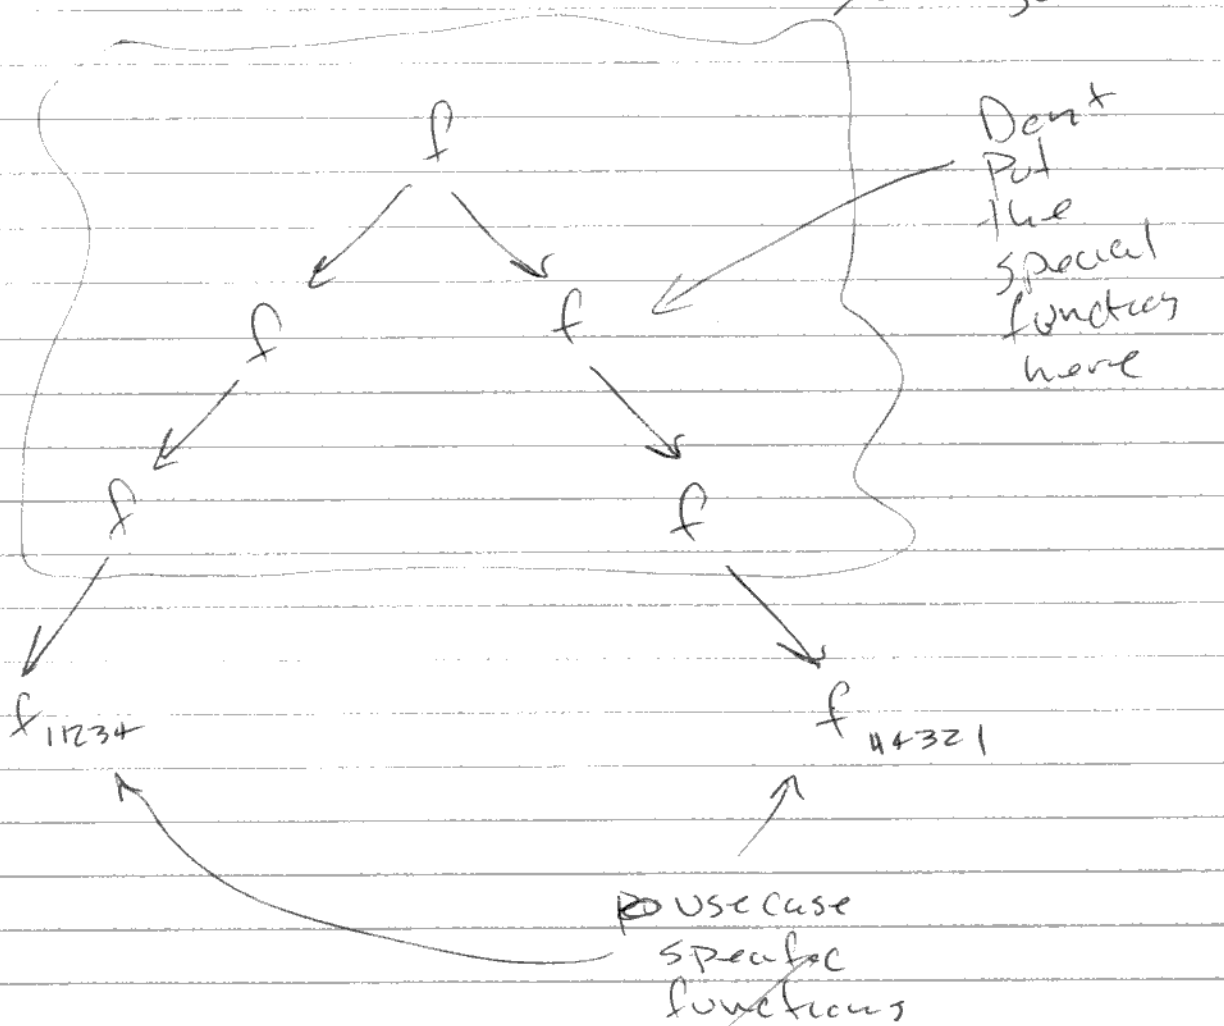 f
Don't
Put
the
special
f
f
functions
here
f
f
f 11234
f 44321
usecase
specific
functions